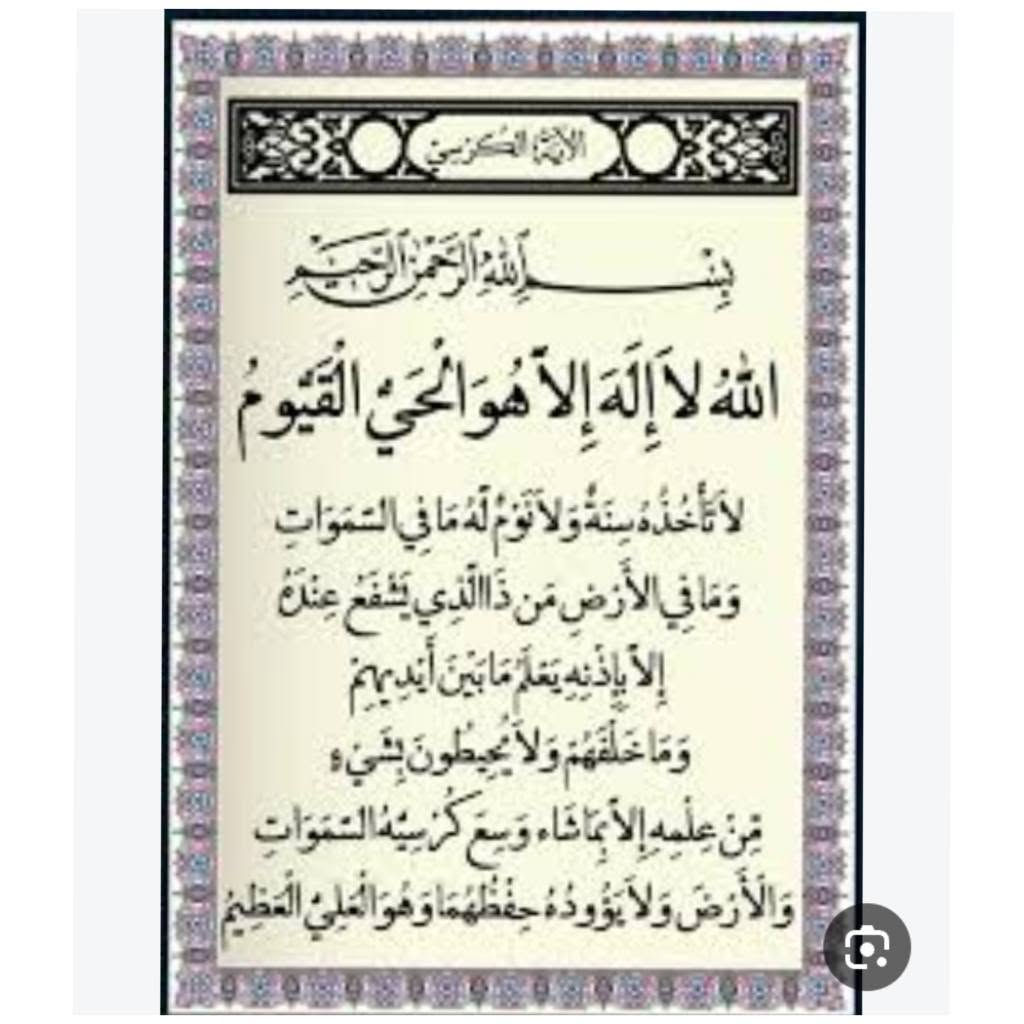 الآية الكرسي
بِسْمِ اللهِ الرَّحْمٰنِ الرَّحِيْمِ
اللهُ لاَ إِلَهَ إِلاَّ هُوَ الْحَيُّ الْقَيُّومُ
لاَ تَأْخُذُهُ سِنَةٌ وَلاَ نَوْمٌ لَّهُ مَا فِي السَّمَوَاتِ
وَمَا فِي الأَرْضِ مَن ذَا الَّذِي يَشْفَعُ عِنْدَهُ
إِلاَّ بِإِذْنِهِ يَعْلَمُ مَا بَيْنَ أَيْدِيهِمْ
وَمَا خَلْفَهُمْ وَلاَ يُحِيطُونَ بِشَيْءٍ
مِّنْ عِلْمِهِ إِلاَّ بِمَا شَاء وَسِعَ كُرْسِيُّهُ السَّمَوَاتِ
وَالْأَرْضَ وَلاَ يَؤُودُهُ حِفْظُهُمَا وَهُوَ الْعَلِيُّ الْعَظِيمُ